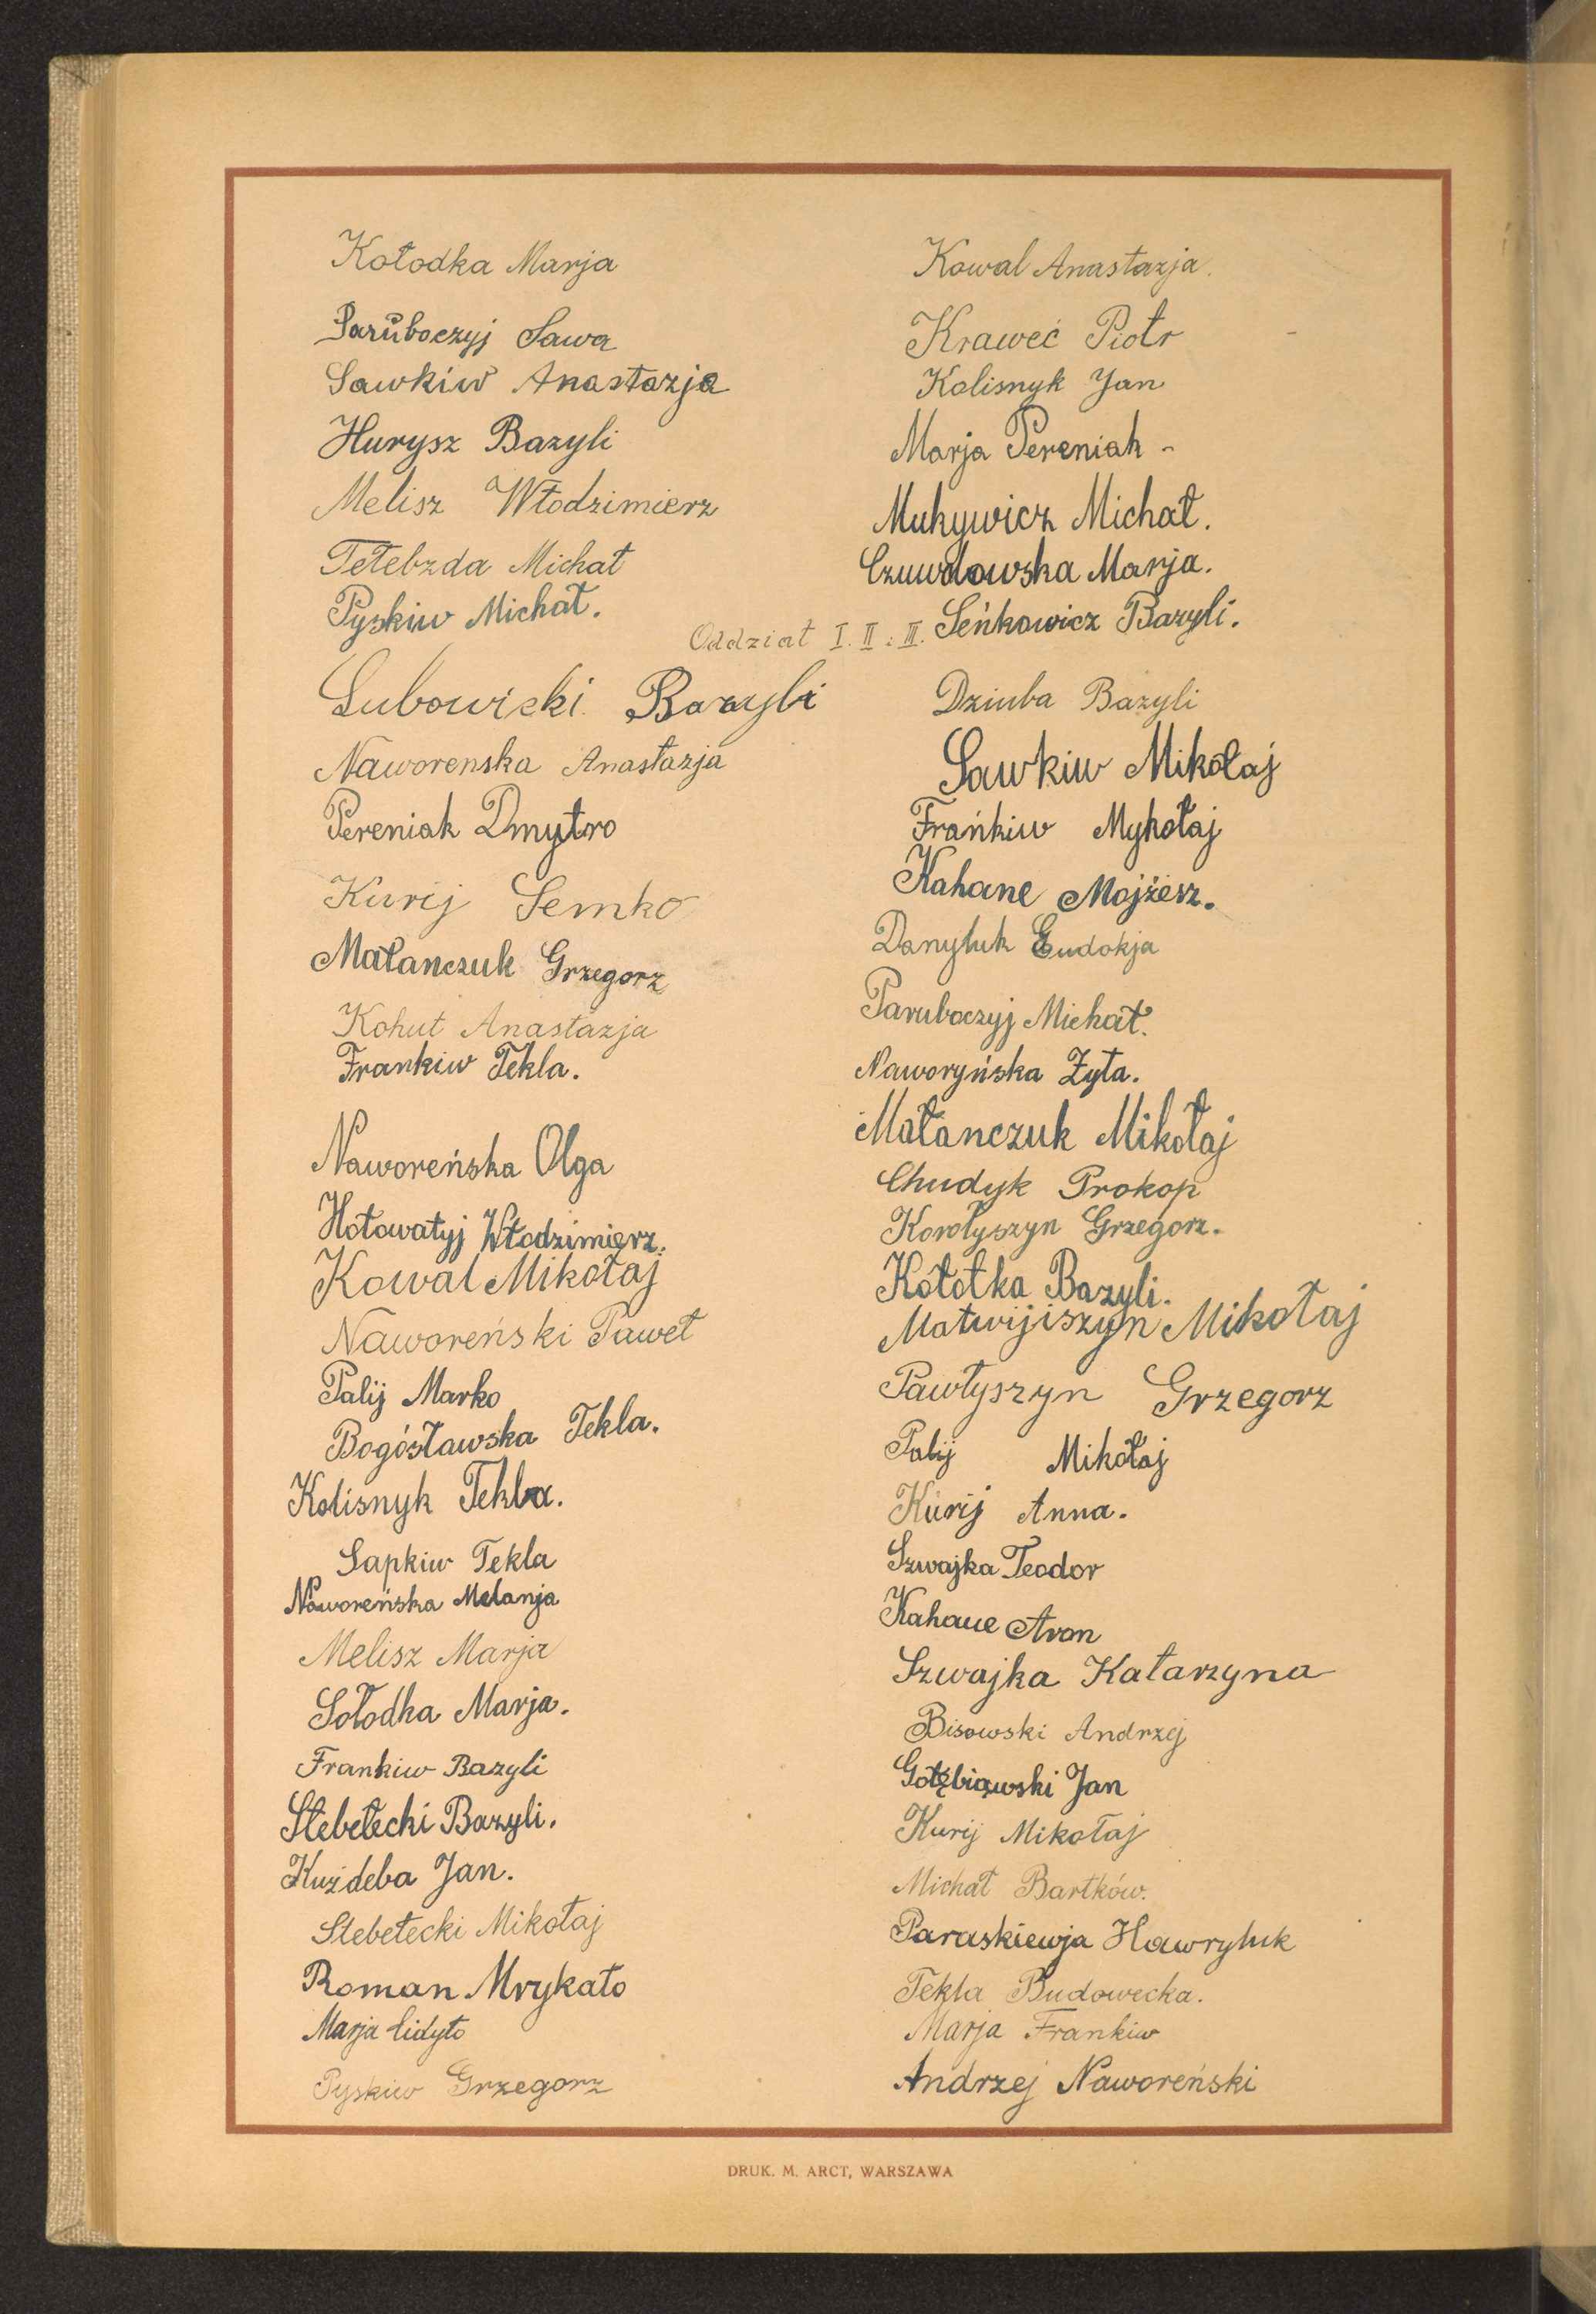 Kołodka Marja
Paruboczyj Sawa
Sawkiw Anastazja
Hurysz Bazyli
Melisz Włodzimierz
Tełebzda Michał
Pyskiw Michał.
Kowal Anastazja.
Kraweć Piotr
Kolisnyk Jan
Marja Pereniak -
Mukywicz Michał.
Czuwdowska Marja.
Seńkowicz Bazyli.
Oddział I. II i III.
Lubowicki Bazyli
Naworenska Anastazja
Pereniak Dmytro
Kurij Semko
Małanczuk Grzegorz
Kohut Anastazja
Frankiw Tekla.
Naworeńska Olga
Hołowatyj Włodzimierz.
Kowal Mikołaj
Naworeński Paweł
Palij Marko
Bogósławska Tekla.
Kolisnyk Tekla.
Sapkiw Tekla
Naworeńska Melanja
Melisz Marja
Sołodka Marja.
Frankiw Bazyli
Stebełecki Bazyli.
Kuździeba Jan.
Stebełecki Mikołaj
Roman Mrykało
Marja Łidyło
Pyskiw Grzegorz
Dziuba Bazyli
Sawkiw Mikołaj
Frańkiw Mykołaj
Kahane Mojżesz.
Danyluk Eudokja
Paruboczyj Michał.
Naworyńska Zyta.
Małanczuk Mikołaj
Chudyk Prokop
Korołyszyn Grzegorz.
Kółotka Bazyli.
Matwijiszyn Mikołaj
Pawłyszyn Grzegorz
Palij Mikołaj
Kurij Anna.
Szwajka Teodor
Kahane Aron
Szwajka Katarzyna
Bisowski Andrzej
Gołębiowski Jan
Kurij Mikołaj
Michał Bartków.
Paraskiewja Hawryluk
Tekla Budowecka.
Marja Frankiw
Andrzej Naworeński
DRUK. M. ARCT, WARSZAWA